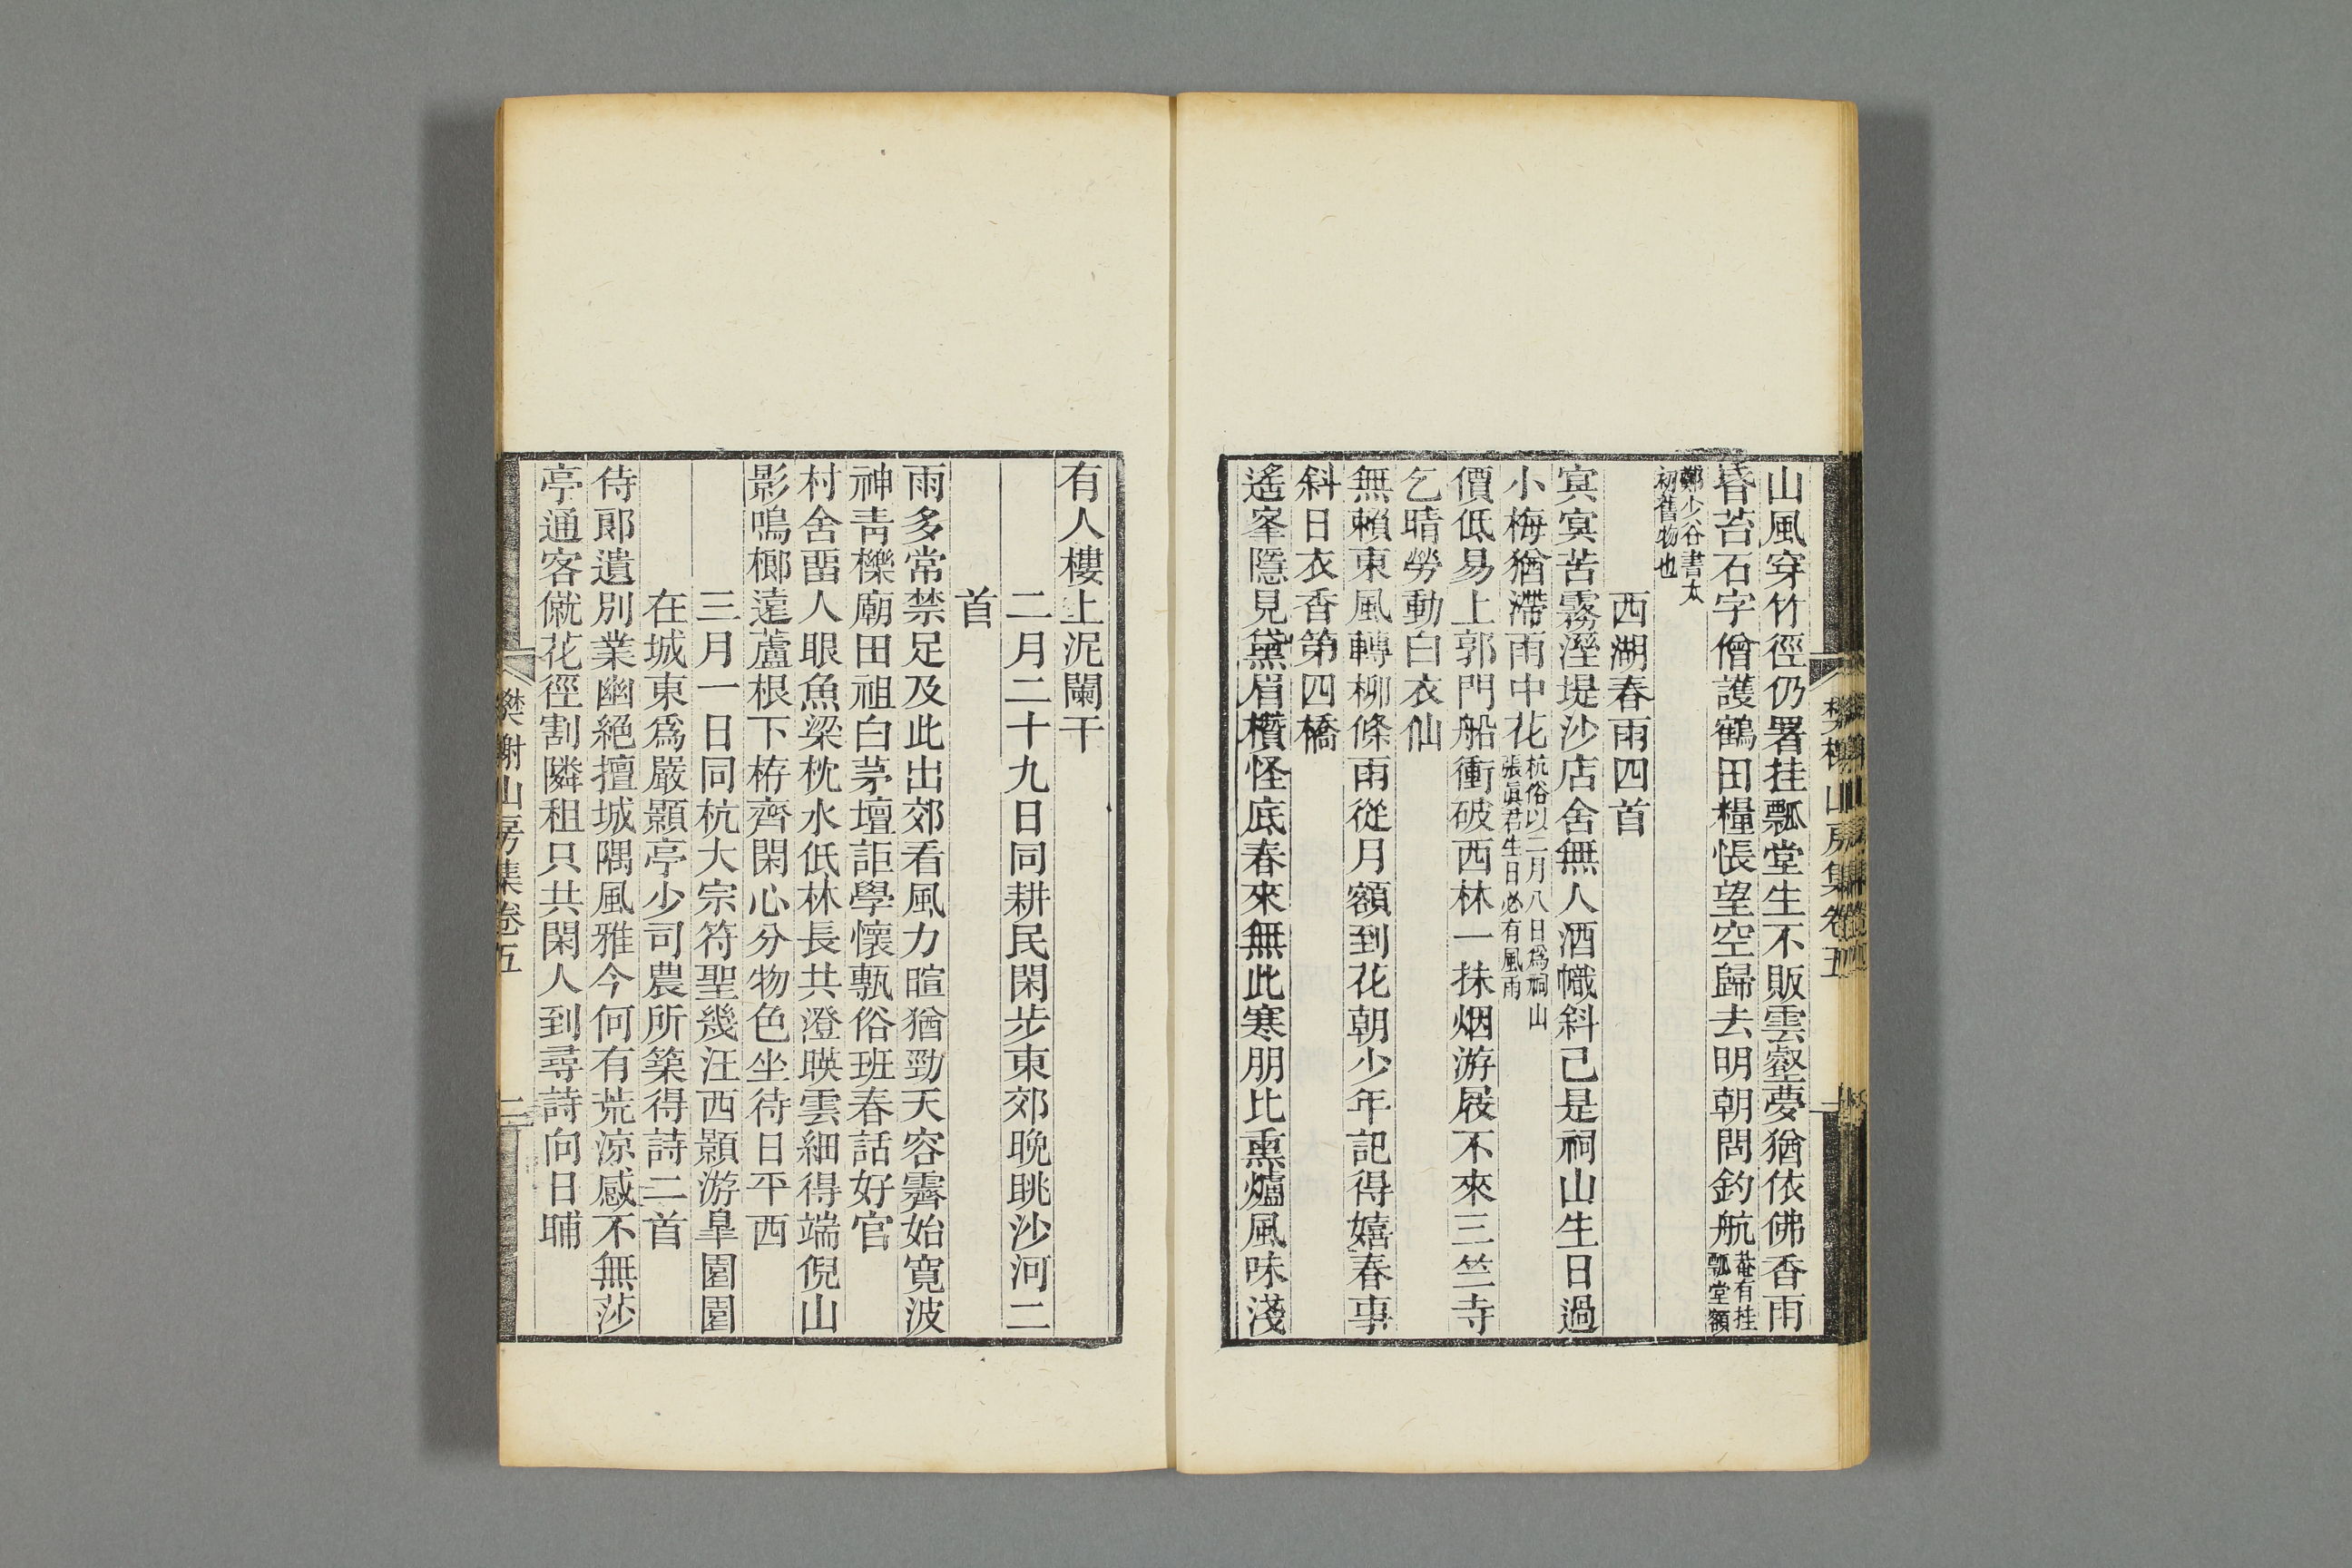 山風穿竹徑仍署挂瓢堂生不販雲壑夢猶依佛香雨
昏苔石字僧護鶴田糧悵望空歸去明朝問釣航菴有挂瓢堂額
鄭少谷書太初舊物也
西湖春雨四首
寅寅苦霧溼堤沙店舍無人酒幟斜己是祠山生日過
小梅猶滯雨中花杭俗以二月八日爲祠山張眞君生日必有風雨
價低易上郭門船衝破西林一抹烟游屐不來三竺寺
乞晴勞動白衣仙
無賴東風轉柳條雨從月額到花朝少年記得嬉春事
斜日衣香第四橋
遙峯隱見黛眉欑怪底春來無此寒朋比熏爐風味淺
樊榭山房集卷五
有人樓上泥闌干
二月二十九日同耕民閑步東郊晚眺沙河二
首
雨多常禁足及此出郊看風力暄猶勁天容霽始寬波
神靑櫟廟田祖白茅壇詎學懷甎俗班春話好官
村舍畱人眼魚梁枕水低林長共澄暎雲細得端倪山
影鳴榔遠蘆根下桥齊閑心分物色坐待日平西
三月一日同杭大宗符聖幾汪西顥游臯園園
在城東爲嚴顥亭少司農所築得詩二首
侍郎遺別業幽絕擅城隅風雅今何有荒涼感不無莎
亭通客僦花徑割隣租只共閑人到尋詩向日晡
樊榭山房集卷五
二